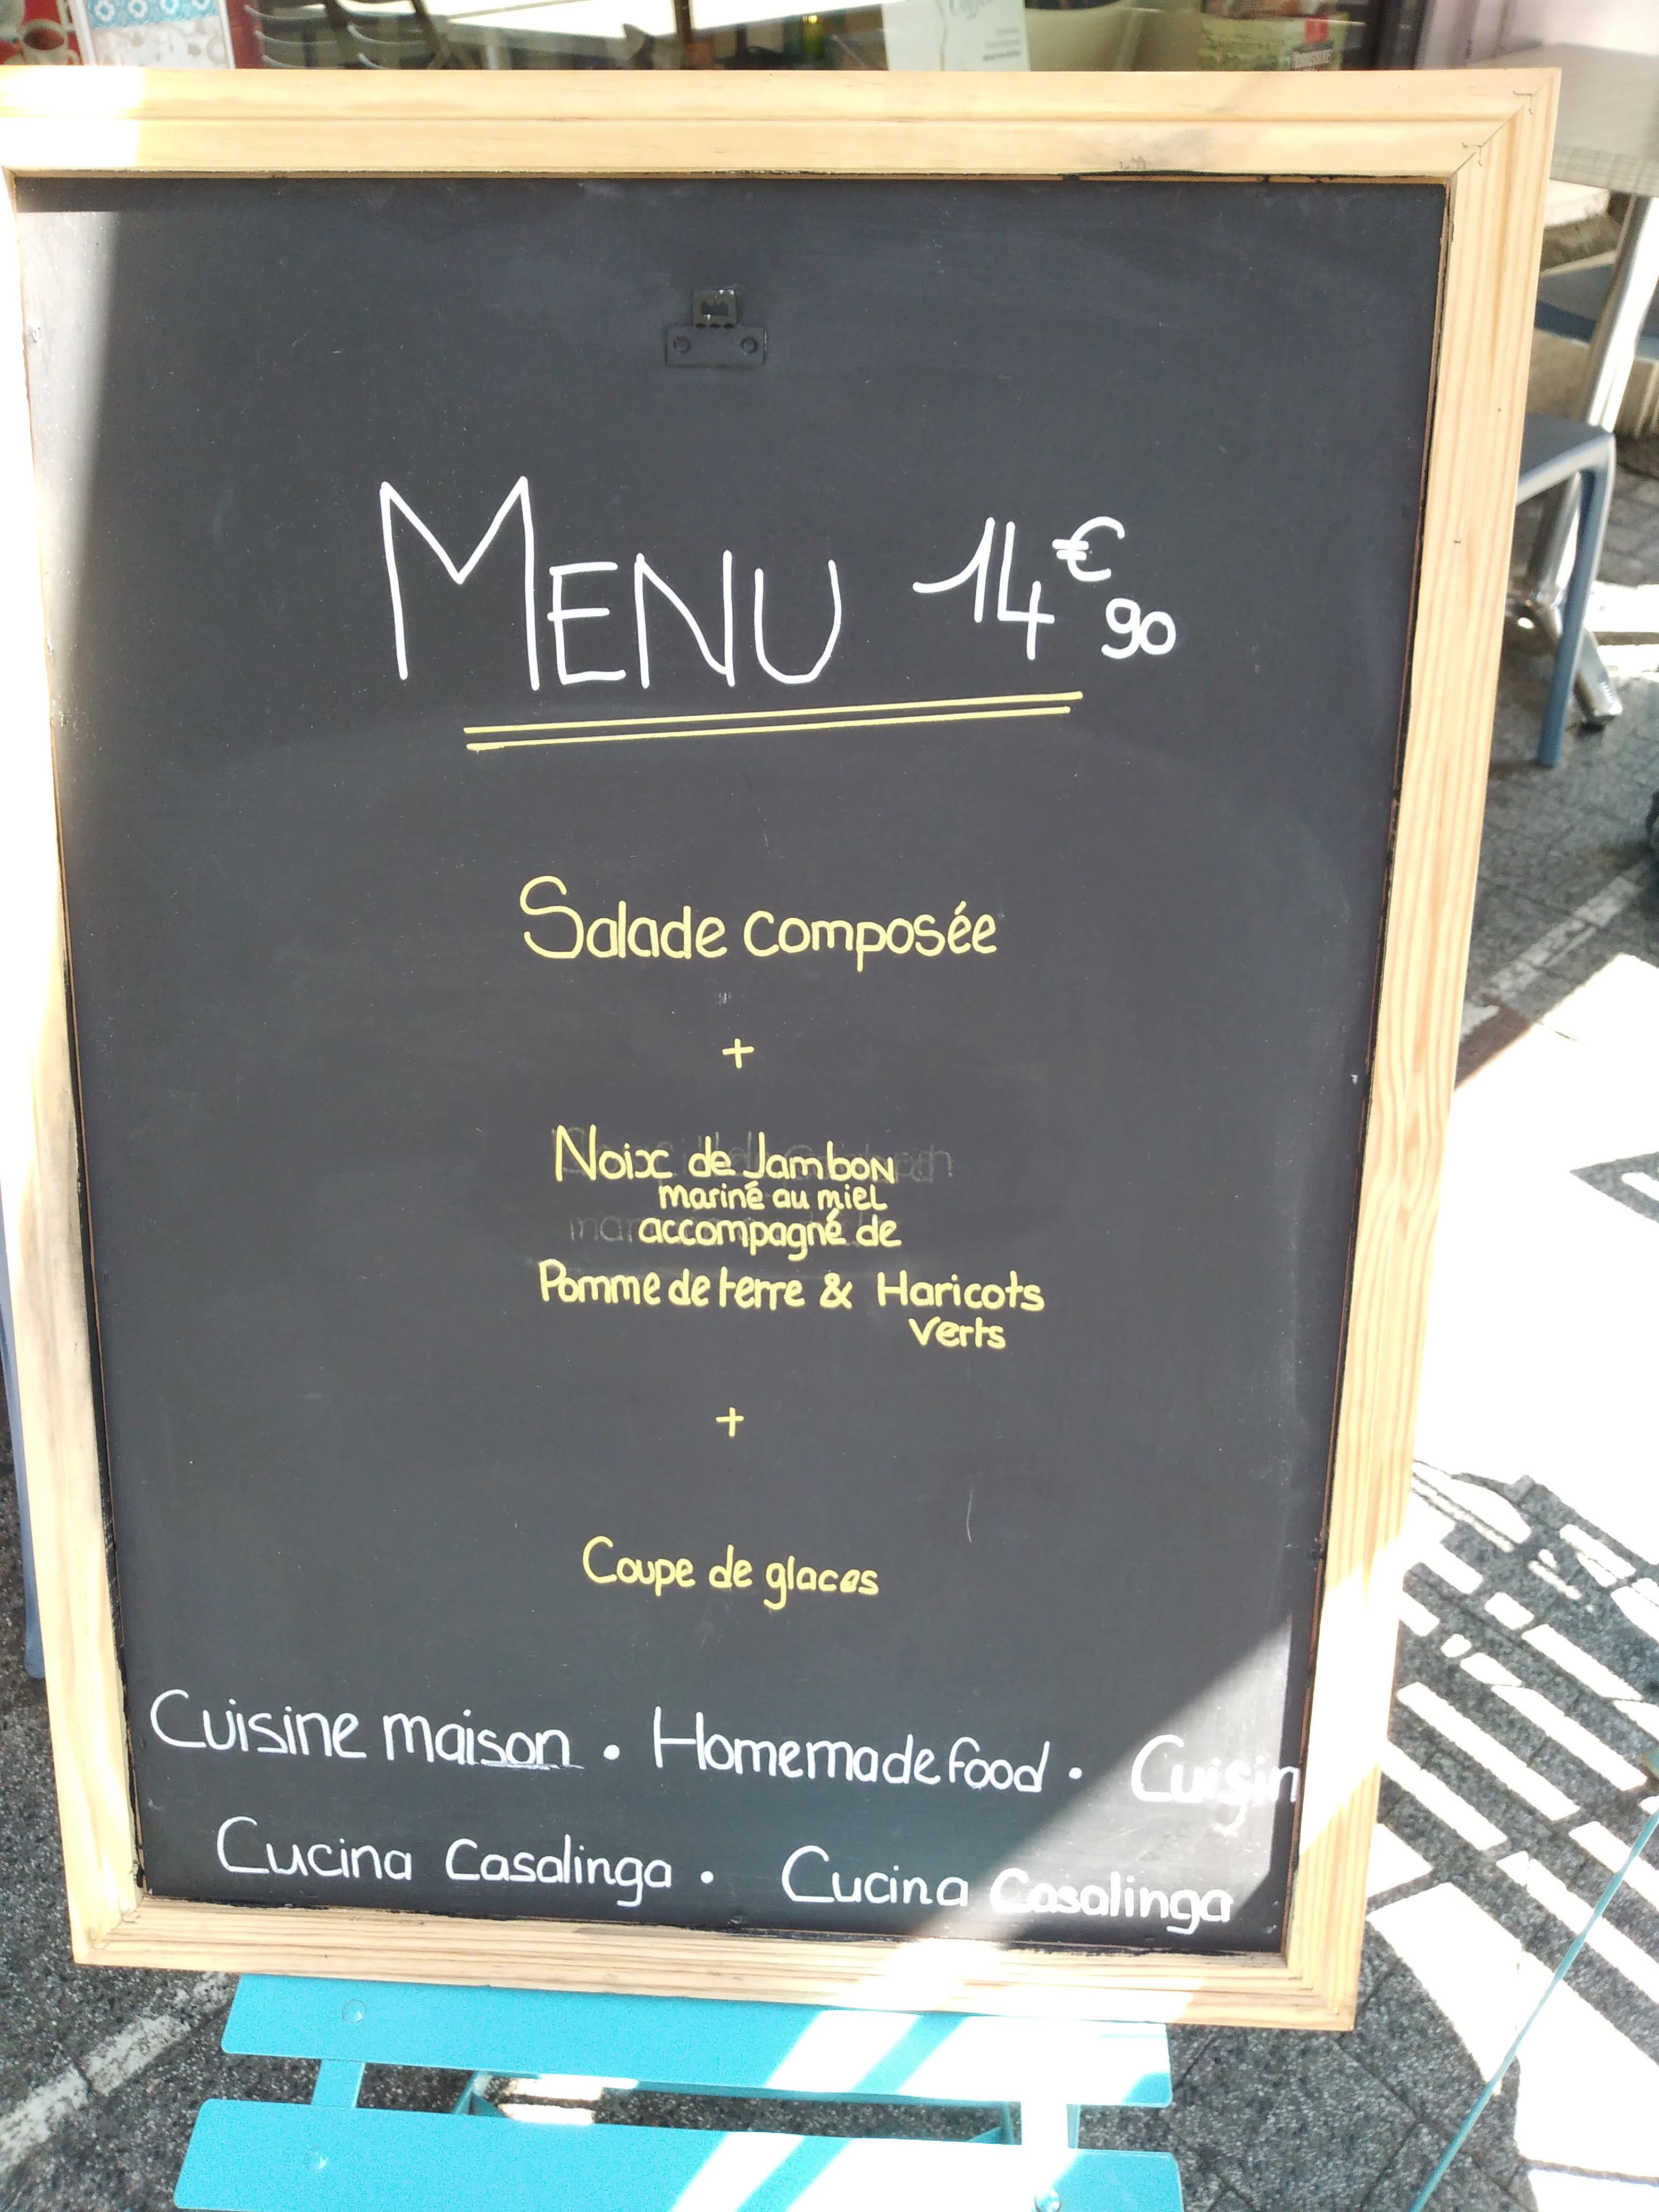 MENU 14€90
Salade composée
+
Noix de Jambon
mariné au miel
accompagné de
Pomme de terre & Haricots
verts
+
Coupe de glaces
Cuisine maison • Homemade food • Cuisin
Cucina Casalinga • Cucina Casalinga